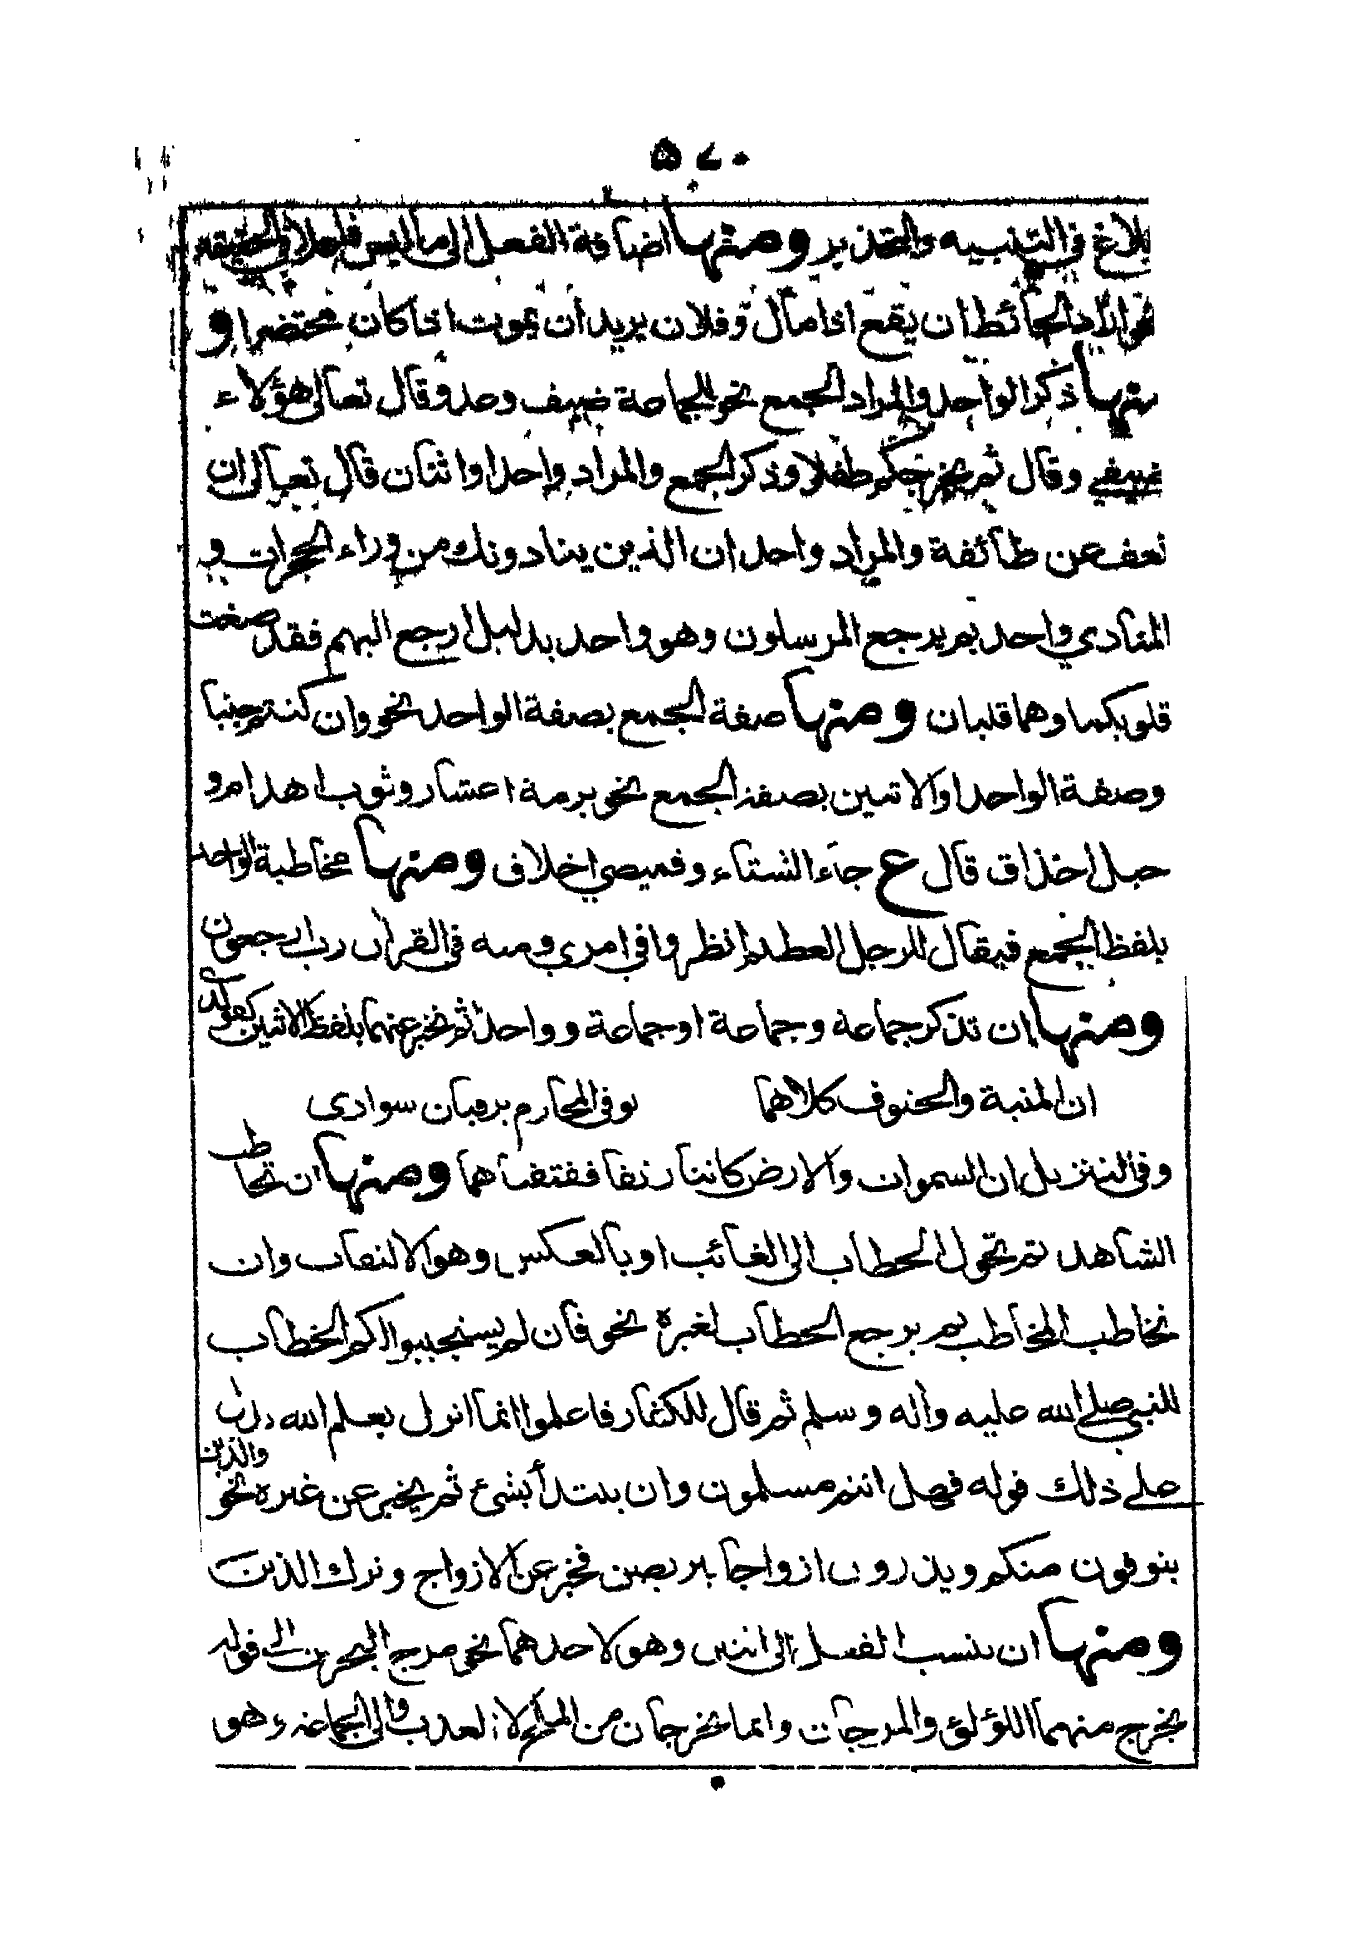 ٥٧٠
بلاغ في التنبيه والتحذير ومنها اضافة الفعل الى ما ليس فاعلا في الحقيقة
نحو اراد الحائط ان يقع اذا مال وفلان يريد ان يموت اذا كان محتضرا و
منها ذكر الواحد والمراد الجمع نحو للجماعة ضيف وعدو قال تعالى هؤلاء
ضيفي وقال ثم يخرجكم طفلا وذكر الجمع والمراد واحد او اثنان قال تعالى ان
نعف عن طائفة والمراد واحد ان الذين ينادونك من وراء الحجرات و
المنادي واحد بم يرجع المرسلون وهو واحد بدليل ارجع اليهم فقد صغت
قلوبكما وهما قلبان ومنها صفة الجمع بصفة الواحد نحو وان كنتم جنبا
وصفة الواحد او الاثنين بصفة الجمع نحو برمة اعشار وثوب اهدام و
حبل اخذاق قال ع جاء الشتاء وقميصي اخلاق ومنها مخاطبة الواحد
بلفظ الجمع فيقال للرجل العظيم انظروا في امري ومنه في القران رب ارجعون
ومنها ان تذكر جماعة وجماعة او جماعة وواحد ثم تخبر عنهما بلفظ الاثنين كقوله
ان المنية والحتوف كلاهما يوفي المخارم يرقبان سوادي
وفي التنزيل ان السموات والارض كانتا رتقا ففتقناهما ومنها ان تخاطب
الشاهد ثم تحول الخطاب الى الغائب او بالعكس وهو الالتفات وان
تخاطب المخاطب ثم يرجع الخطاب لغيره نحو فان لم يستجيبوا لكم الخطاب
للنبي صلى الله عليه وآله وسلم ثم قال للكفار فاعلموا انما انزل بعلم الله دل
على ذلك قوله فهل انتم مسلمون وان يبتدأ بشئ ثم يخبر عن غيره نحو والذين
يتوفون منكم ويذرون ازواجا يتربصن فخبر عن الازواج وترك الذين
ومنها ان ينسب الفعل الى اثنين وهو لاحدهما نحو مرج البحرين الى قوله
يخرج منهما اللؤلؤ والمرجان وانما يخرجان من الملح لا العذب والى الجماعة وهو